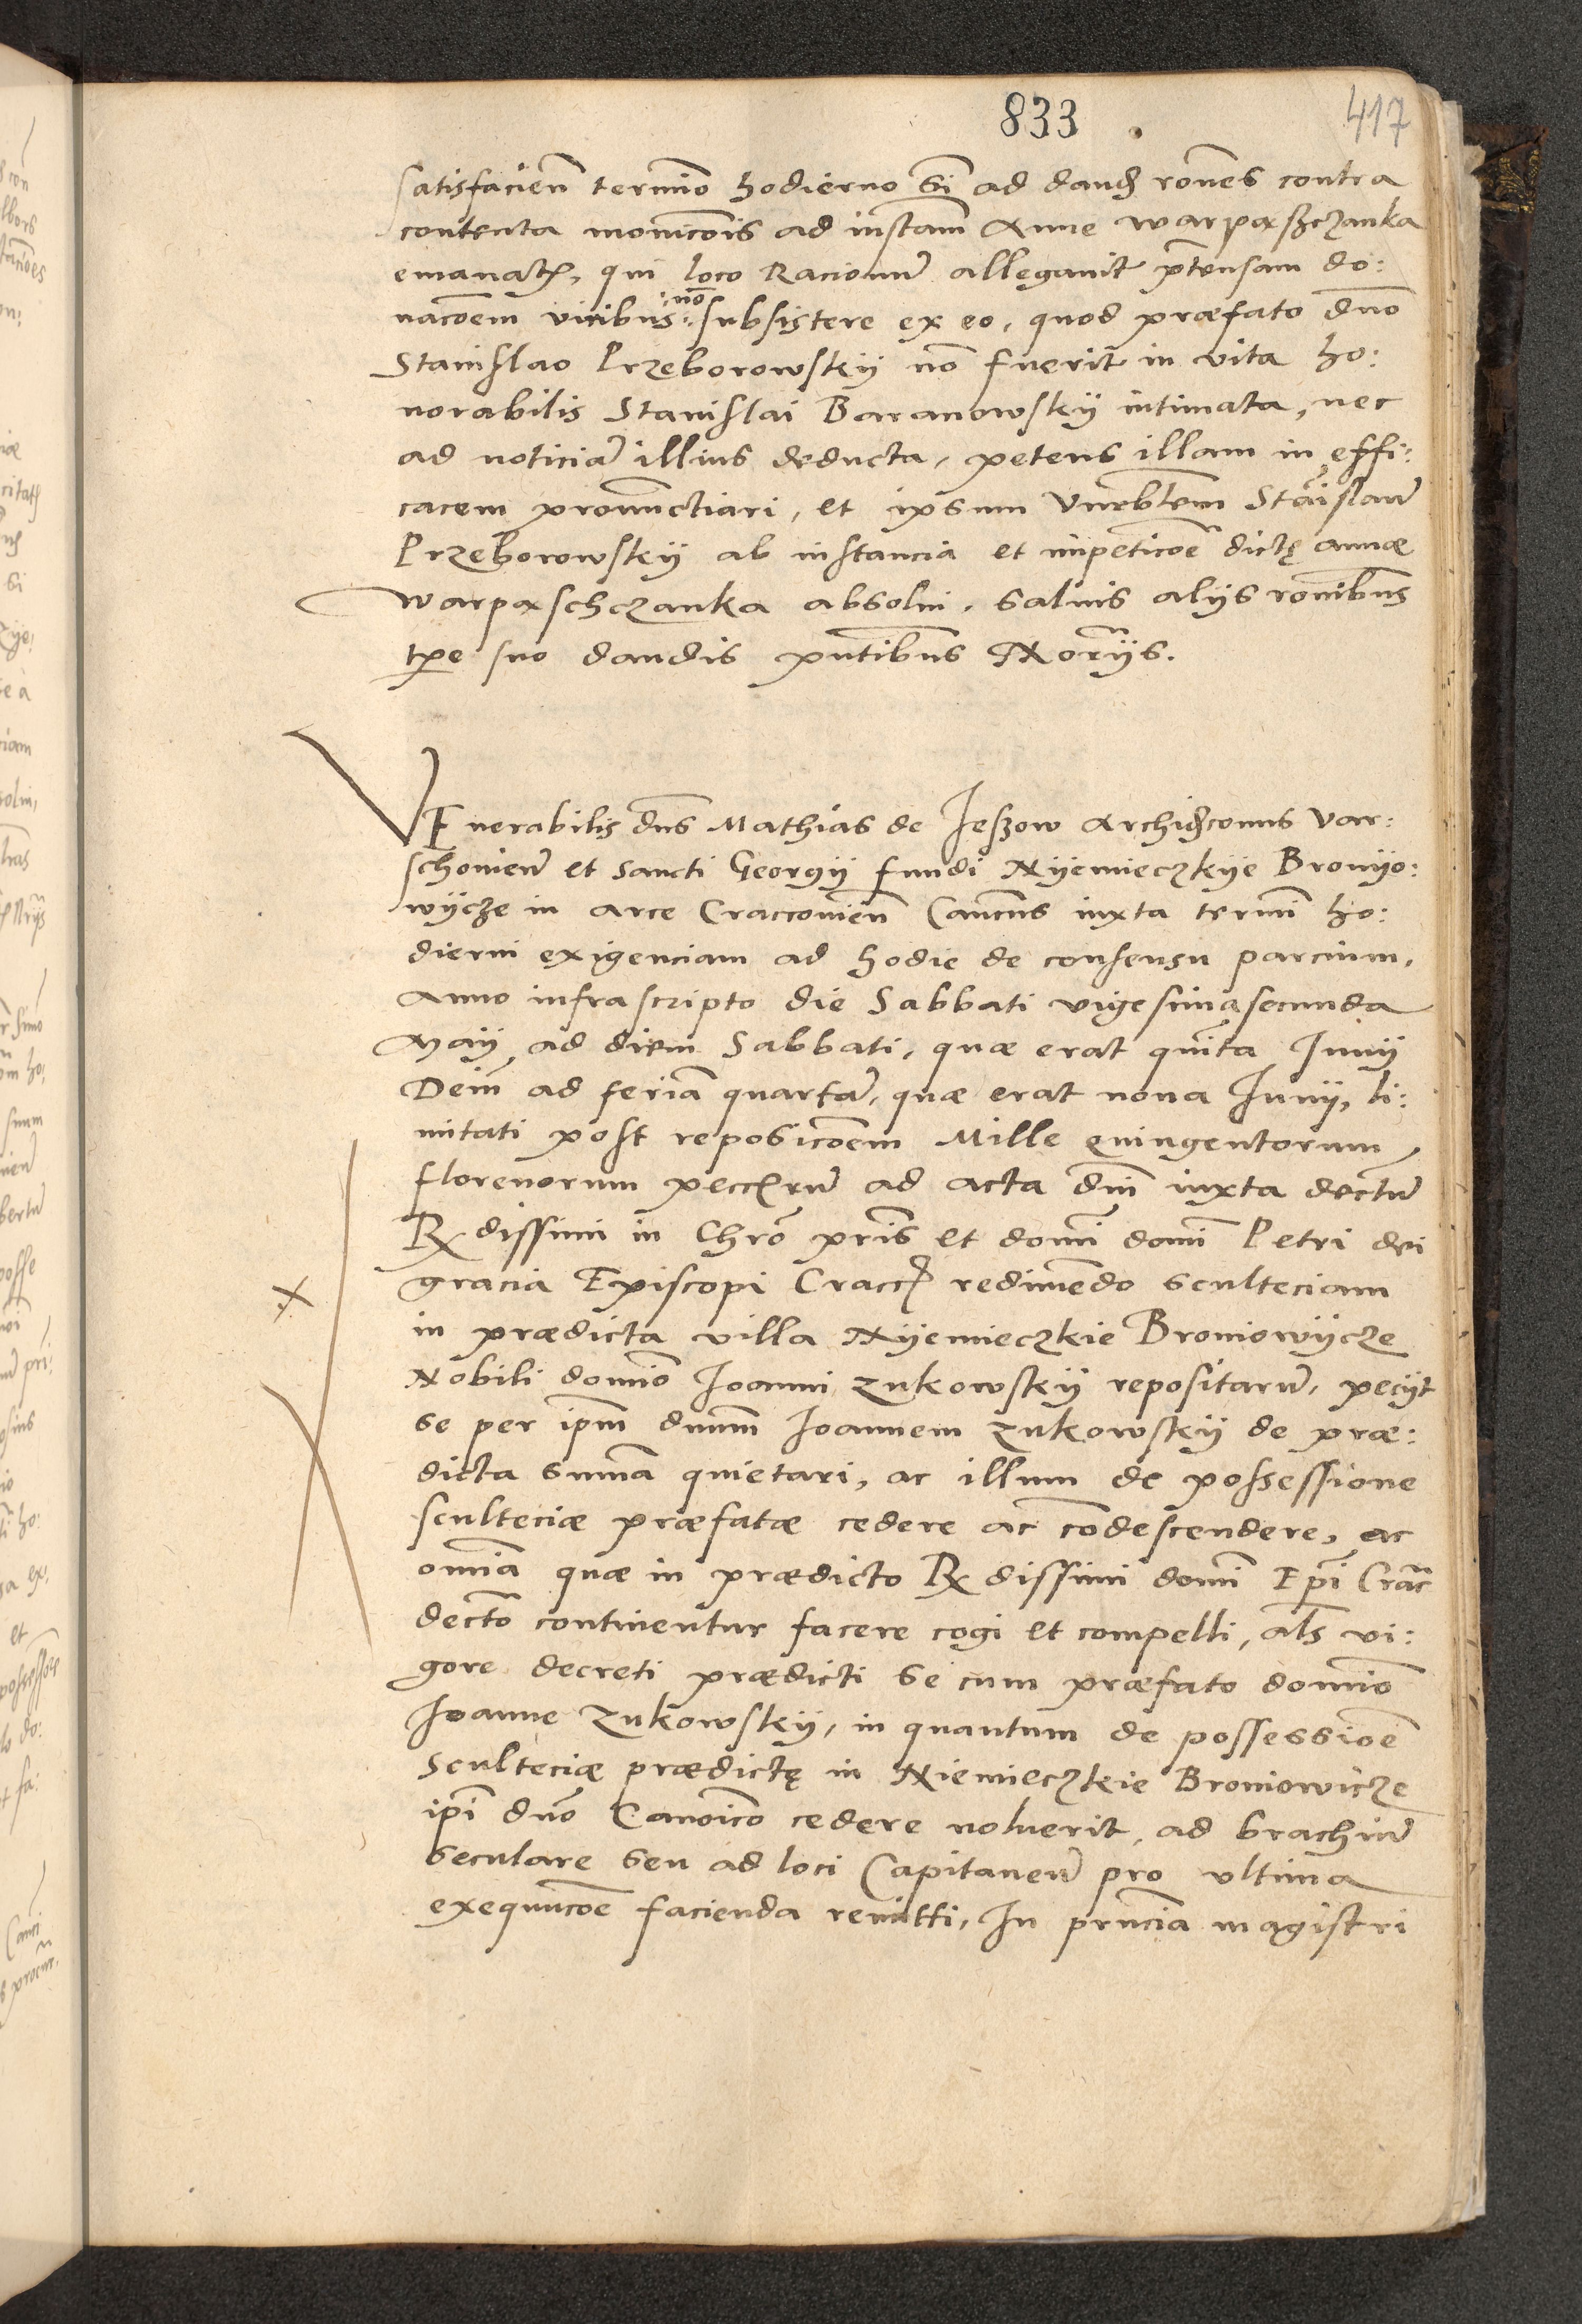 833 417
satisfacien̄ termīo hodierno s̄i ad dand̨ rōnes contra
contenta monicōis ad instam̄ Anne warpaßczanka
emanat̨, qui loco Racionū allegauit p̄tensam do:
nacōem viribus :nō: subsistere ex eo, quod præfato dn̄o
Stanislao Przeborowskÿ nō fuerit in vita ho:
norabilis Stanislai Baranowskÿ intimata, nec
ad noticiā illius deducta, petens illam in effi:
cacem pronunctiari, et ipsum Vnēbtem Stāislaū
Przeborowskÿ ab instancia et impeticōe dictę annæ
warpaschczanka absolui, saluis alÿs rōnibus
tpe suo dandis pn̄tibus Norÿs.
VEnerabilis dn̄s Mathias de Jeßow Archid̨conus Var:
schouieñ et Sancti Georgÿ fundi Nÿemieczkÿe Bronÿo:
wÿcze in arce Craccouien̄ Cancūs iuxta termi ho:
dierni exigenciam ad hodie de consensu parcium,
Anno infrascripto die Sabbati vigesimasecunda
Maÿ ad diem Sabbati, quæ erat quīta Junÿ
Dein̄ ad feriā quartā, quæ erat nona Junÿ, li:
mitati post reposicōem Mille quingentorum
florenorum pecc̨rū ad acta dn̄i iuxta dectū
Rdissimi in Chrō pris̄ et domī domī Petri dei
gracia Episcopi Cracc̨ redimendo sculteciam
in prædicta villa Nÿemieczkie Broniowÿcze
Nobili domīo Joanni Zukowskÿ repositarū, pecÿt
se per ip̄m dnūm Joannem Zukowskÿ de præ:
dicta sum̄a quietari, ac illum de possessione
sculteciæ præfatæ cedere ac cōdescendere, ac
om̄ia quæ in prædicto Rdissimi domī Ep̄i Crac̄
dectō continentur facere cogi et compelli, als̄ vi:
gore decreti prædicti se cum præfato domīo
Joanne Zukowskÿ, in quantum de possessiōe
Sculteciæ prædictę in Niemieczkie Broniowicze
ip̄i dn̄o Canōico cedere noluerit, ad brachiū
seculare seu ad loci Capitaneū pro vltima
exequucōe facienda remitti, In prn̄cia magistri